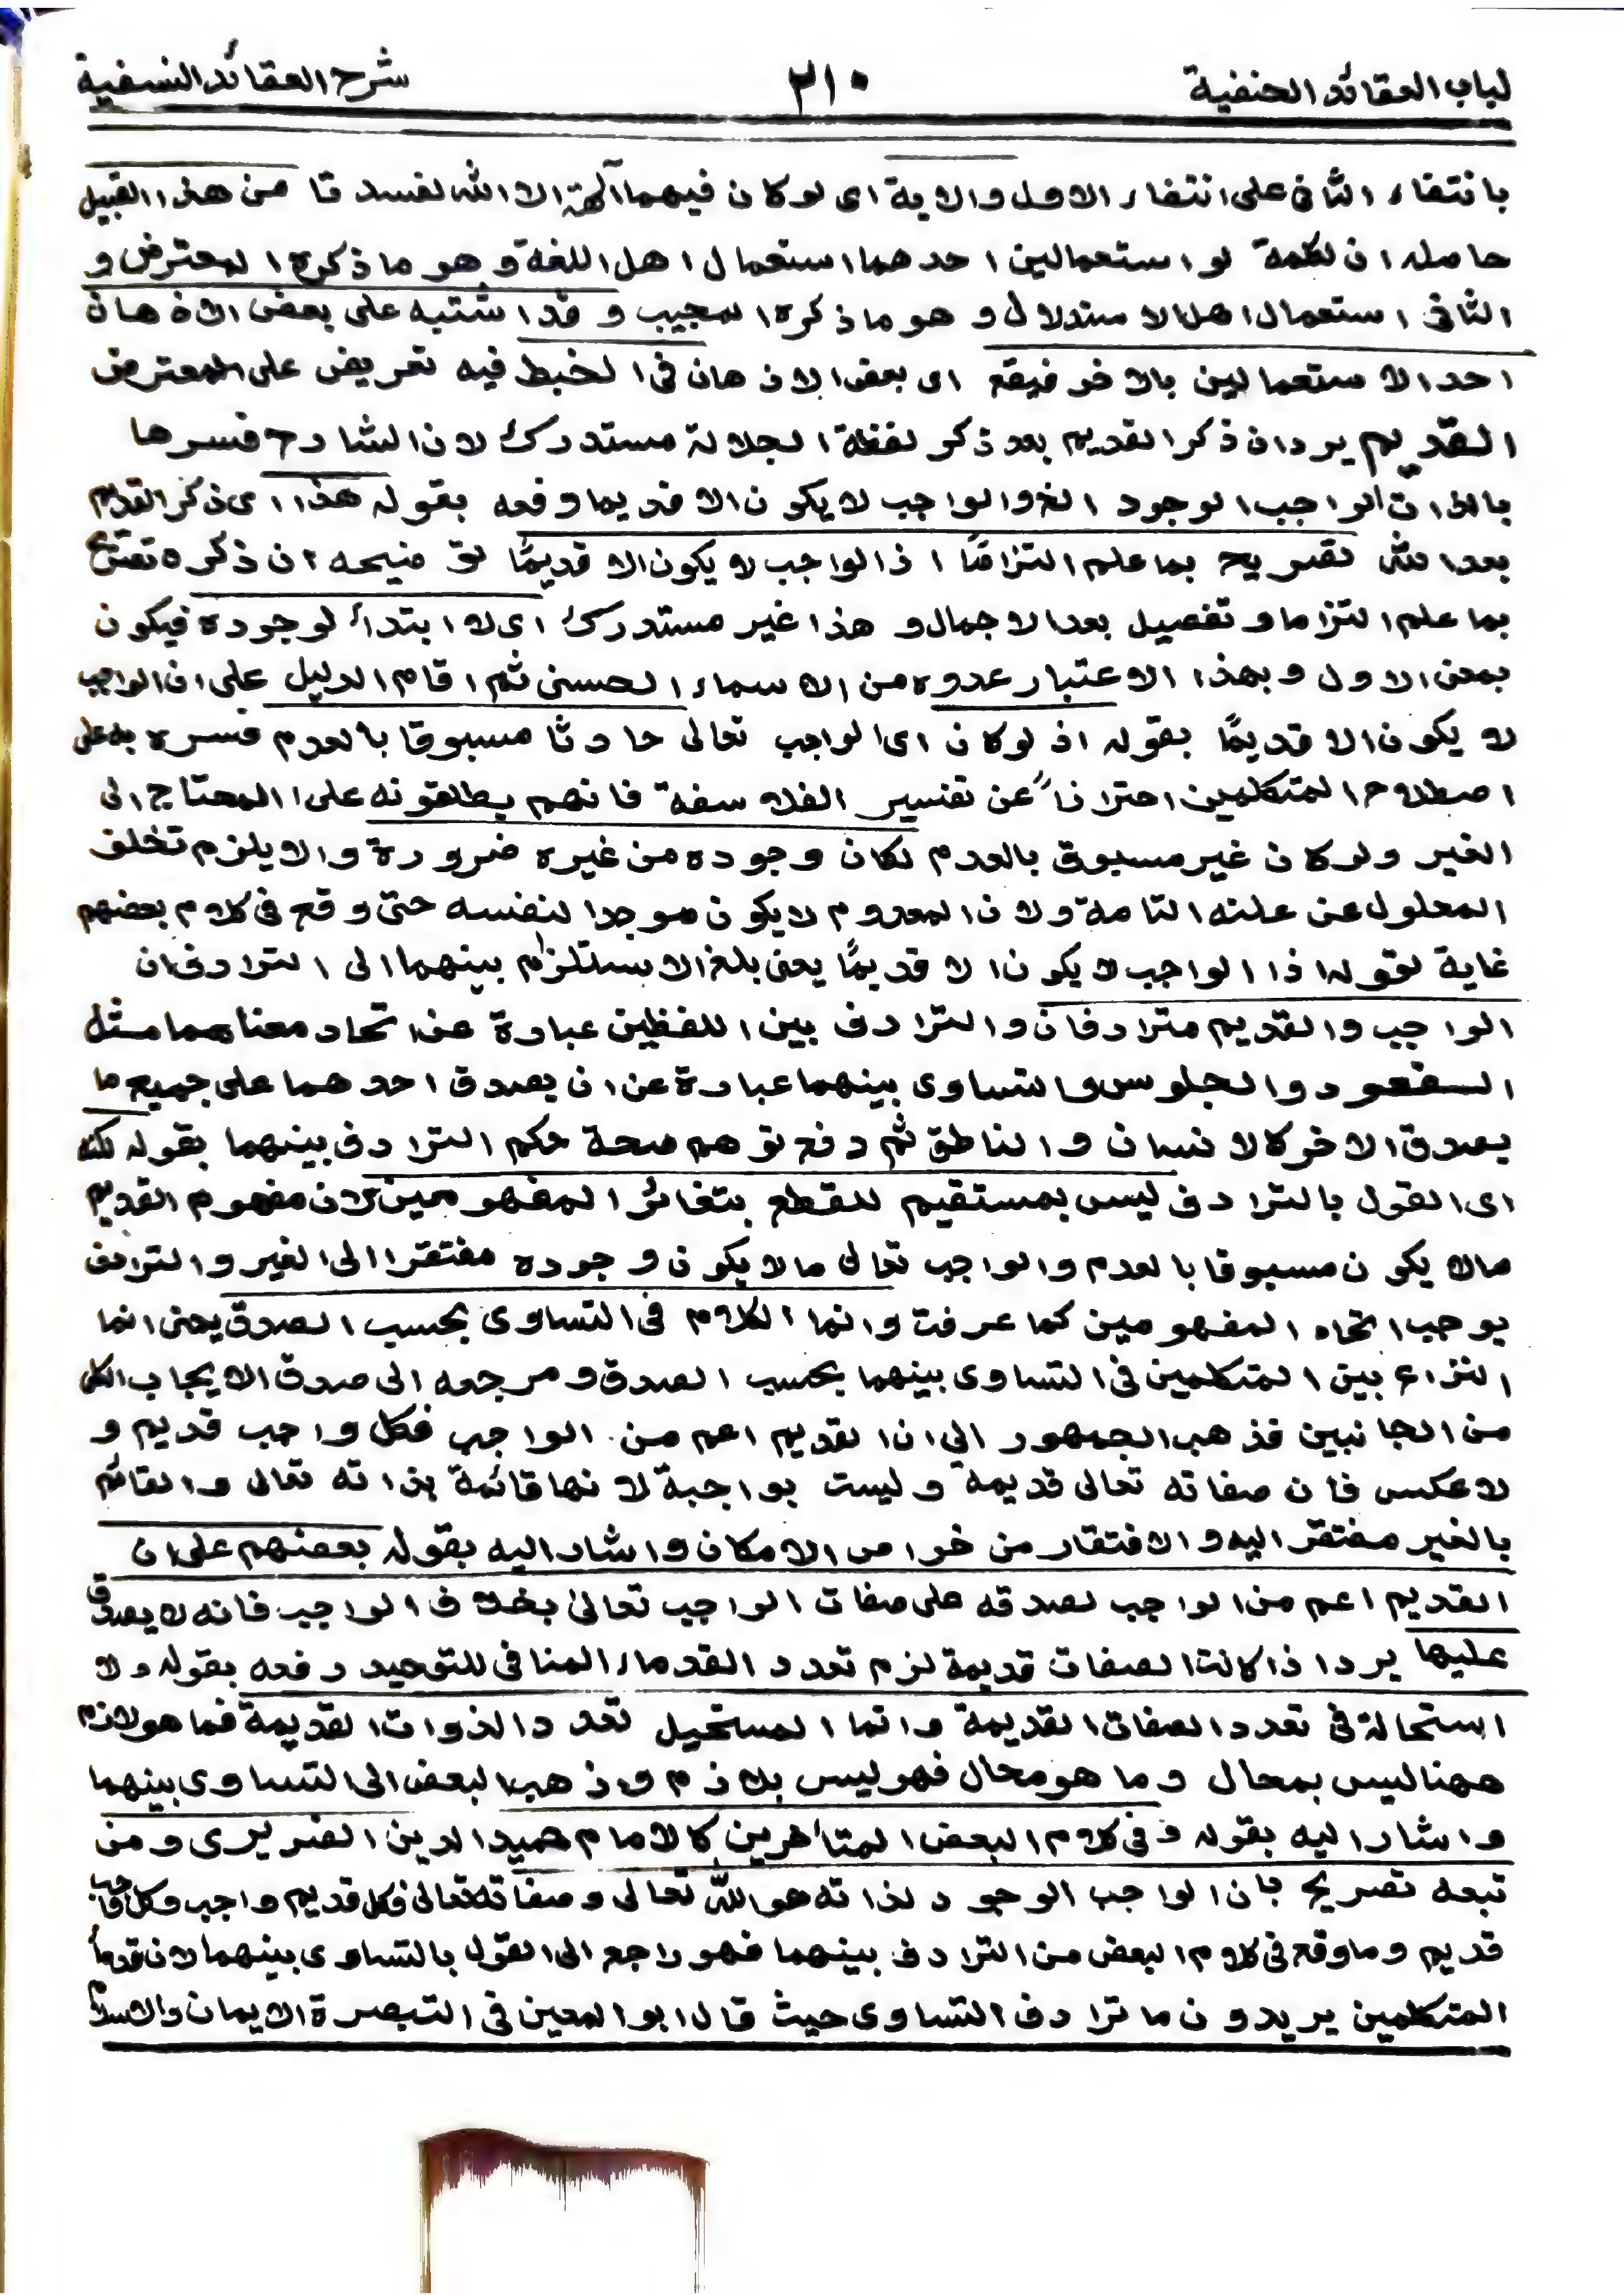 لباب العقائد الحنفية ٢١٠ شرح العقائد النسفية
بانتفاء الثانى على انتفاء الاول والاية اى لوكان فيهما آلهة الا الله لفسدتا من هذا القبيل
حاصله ان لكلمة لو استعمالين احدهما استعمال اهل اللغة وهو ماذكره المعترض و
الثانى استعمال اهل الاستدلال وهو ماذكره المجيب وقد اشتبه على بعض الاذهان
احد الاستعمالين بالاخر فيقع اى بعض الاذهان فى الخبط فيه تعريض على المعترض
القديم يرد ان ذكر القديم بعد ذكر لفظة الجلالة مستدرك لان الشارح فسرها
بالذات الواجب الوجود الخ والواجب لا يكون الا قديما دفعه بقوله هذا اى ذكر القديم
بعد الله تصريح بما علم التزامًا اذ الواجب لا يكون الا قديمًا ان ذكره
بما علم التزاما وتفصيل بعد الاجمال وهذا غير مستدرك اى لا ابتداء لوجوده فيكون
بمعنى الاول وبهذا الاعتبار عدوه من الاسماء الحسنى ثم اقام الدليل على ان الواجب
لا يكون الا قديمًا بقوله اذ لوكان اى الواجب تعالى حادثا مسبوقا بالعدم فسره به على
اصطلاح المتكلمين احترازًا عن تفسير الفلاسفة فانهم يطلقونه على المحتاج الى
الغير ولوكان غير مسبوق بالعدم لكان وجوده من غيره ضرورة والا يلزم تخلف
المعلول عن علته التامة ولان المعدوم لا يكون موجدا لنفسه حتى وقع فى كلام بعضهم
غاية لقوله اذا الواجب لا يكون الا قديمًا يعنى بلغ الاستلزام بينهما الى الترادف ان
الواجب والقديم مترادفان والترادف بين اللفظين عبارة عن اتحاد معناهما مثل
القعود والجلوس والتساوى بينهما عبارة عن ان يصدق احدهما على جميع ما
يصدق الاخر كالانسان والناطق ثم دفع توهم صحة حكم الترادف بينهما بقوله لكنه
اى القول بالترادف ليس بمستقيم للقطع بتغائر المفهومين لان مفهوم القديم
مالا يكون مسبوقا بالعدم والواجب تعالى مالا يكون وجوده مفتقرا الى الغير والترادف
يوجب اتحاد المفهومين كما عرفت وانما الكلام فى التساوى بحسب الصدق يعنى انما
النزاع بين المتكلمين فى التساوى بينهما بحسب الصدق ومرجعه الى صدق الايجاب الكلى
من الجانبين فذهب الجمهور الى ان القديم اعم من الواجب فكل واجب قديم و
لا عكس فان صفاته تعالى قديمة وليست بواجبة لانها قائمة بذاته تعالى والقائم
بالغير مفتقر اليه والافتقار من خواص الامكان واشار اليه بقوله بعضهم على ان
القديم اعم من الواجب لصدقه على صفات الواجب تعالى بخلاف الواجب فانه لا يصدق
عليها يرد اذا كانت الصفات قديمة لزم تعدد القدماء المنافى للتوحيد دفعه بقوله ولا
استحالة فى تعدد الصفات القديمة وانما المستحيل تعدد الذوات القديمة فما هو لازم
ههنا ليس بمحال وما هو محال فهو ليس بلازم وذهب البعض الى التساوى بينهما
واشار اليه بقوله وفى كلام البعض المتأخرين كالامام حميد الدين الضريرى ومن
تبعه تصريح بان الواجب الوجود لذاته هو الله تعالى وصفاته تعالى فكل قديم واجب وكل واجب
قديم وما وقع فى كلام البعض من الترادف بينهما فهو راجع الى القول بالتساوى بينهما لان قدماء
المتكلمين يريدون ما ترادف التساوى حيث قال ابو المعين فى التبصرة الايمان والاسلام